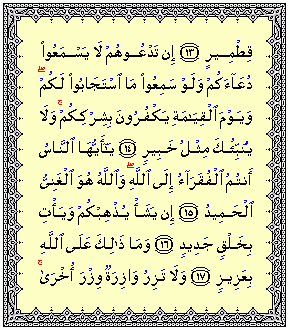 قِطْمِيرٍ ﴿١٣﴾ إِن تَدْعُوهُمْ لَا يَسْمَعُوا۟
دُعَآءَكُمْ وَلَوْ سَمِعُوا۟ مَا ٱسْتَجَابُوا۟ لَكُمْ ۖ
وَيَوْمَ ٱلْقِيَـٰمَةِ يَكْفُرُونَ بِشِرْكِكُمْ ۚ وَلَا
يُنَبِّئُكَ مِثْلُ خَبِيرٍ ﴿١٤﴾ يَـٰٓأَيُّهَا ٱلنَّاسُ
أَنتُمُ ٱلْفُقَرَآءُ إِلَى ٱللَّهِ ۖ وَٱللَّهُ هُوَ ٱلْغَنِىُّ
ٱلْحَمِيدُ ﴿١٥﴾ إِن يَشَأْ يُذْهِبْكُمْ وَيَأْتِ
بِخَلْقٍ جَدِيدٍ ﴿١٦﴾ وَمَا ذَٰلِكَ عَلَى ٱللَّهِ
بِعَزِيزٍ ﴿١٧﴾ وَلَا تَزِرُ وَازِرَةٌ وِزْرَ أُخْرَىٰ ۚ